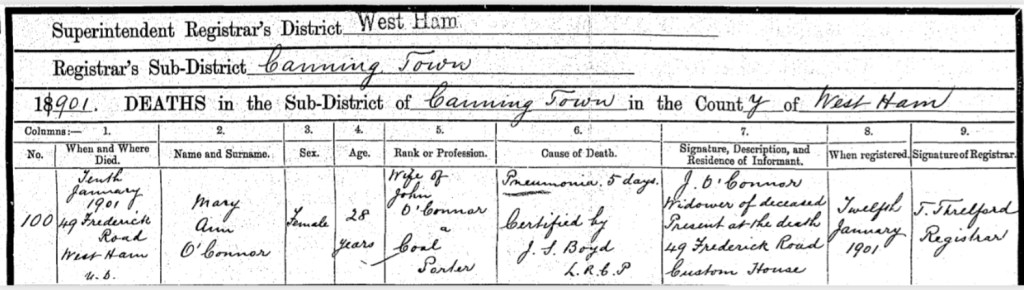 Superintendent Registrar's District West Ham
Registrar's Sub-District Canning Town
18901. DEATHS in the Sub-District of Canning Town in the County of West Ham
Columns:— 1. 2. 3. 4. 5. 6. 7. 8. 9.
No. When and Where Died. Name and Surname. Sex. Age. Rank or Profession. Cause of Death. Signature, Description, and Residence of Informant. When registered. Signature of Registrar.
100
Tenth
January
1901
49 Frederick
Road
West Ham
u.d.
Mary
Ann
O'Connor
Female
28
years
Wife of
John
O'Connor
a
Coal
Porter
Pneumonia. 5 days.
Certified by
J. S. Boyd
L.R.C.P
J. O'Connor
Widower of deceased
Present at the death
49 Frederick Road
Custom House
Twelfth
January
1901
T. Threlford
Registrar